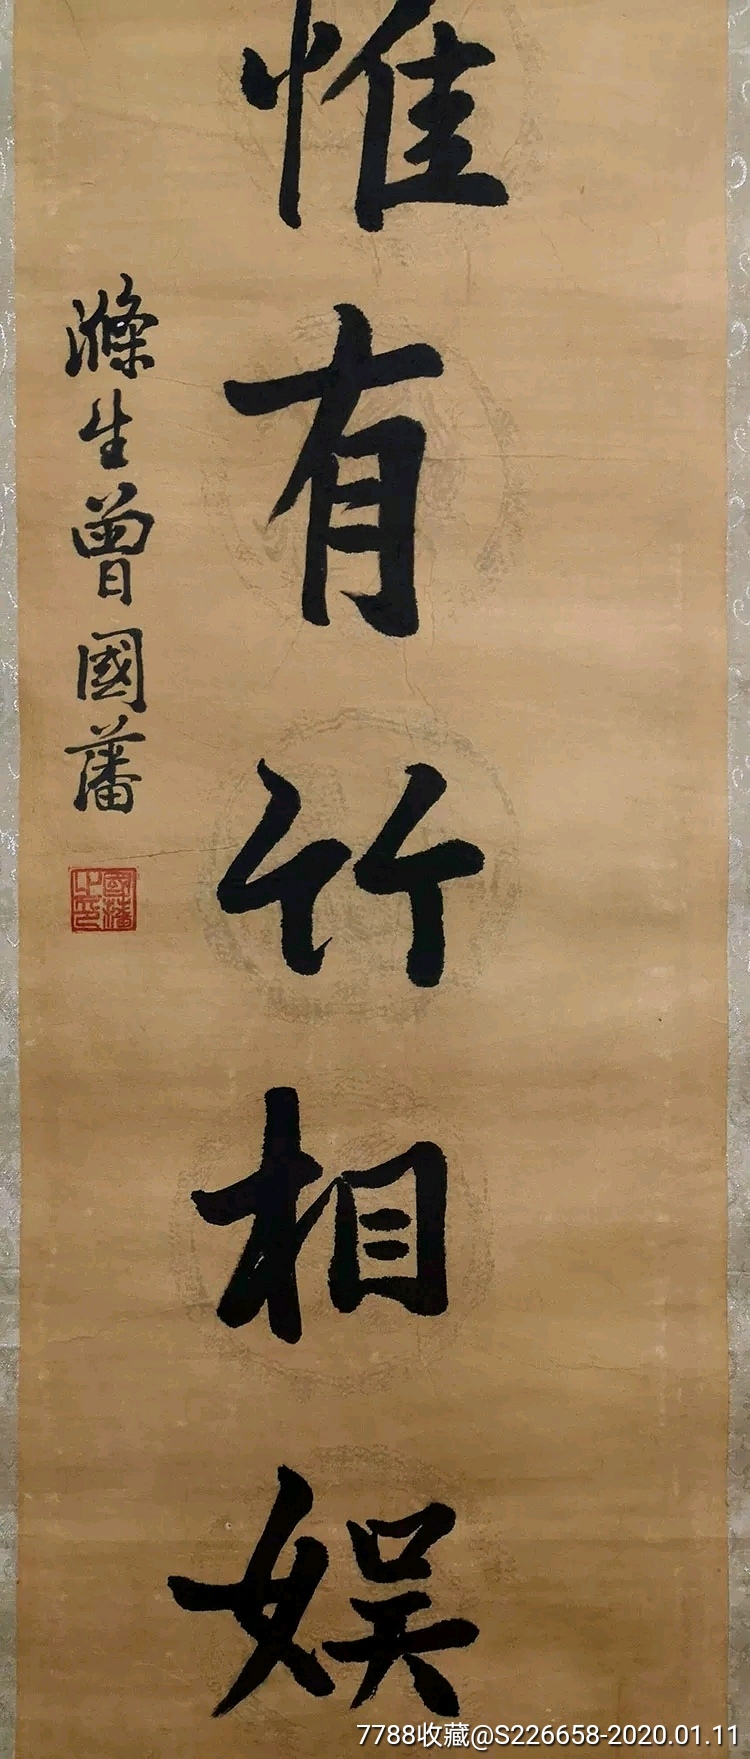 惟有竹相娱
滌生曾國藩
國藩之印
7788收藏@S226658-2020.01.11